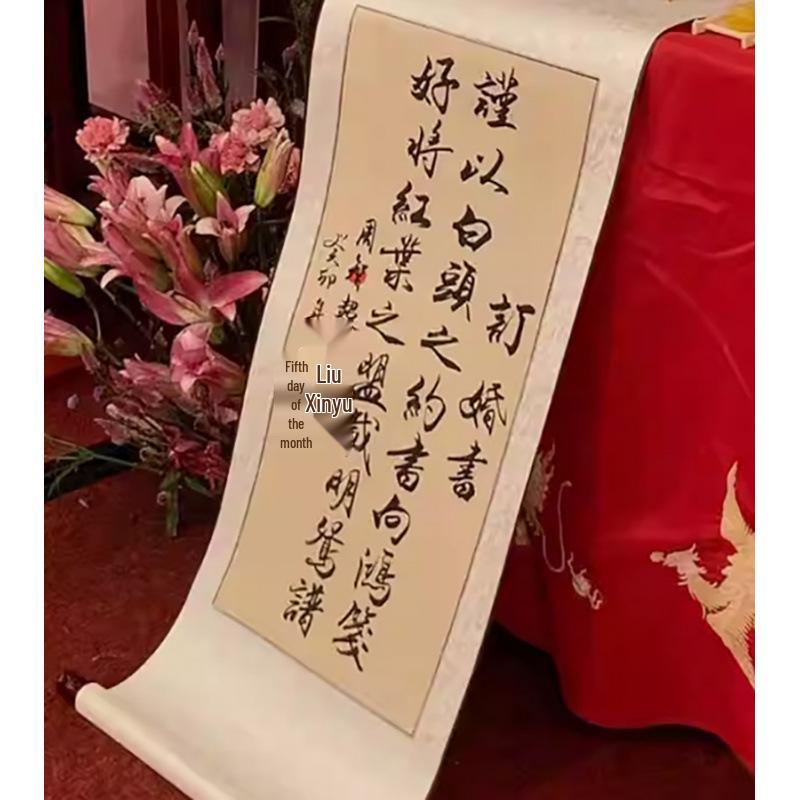 訂婚書
謹以白頭之約書向鴻箋
好將紅葉之盟載明鴛譜
周
癸卯年
Liu
Xinyu
Fifth
day
of
the
month